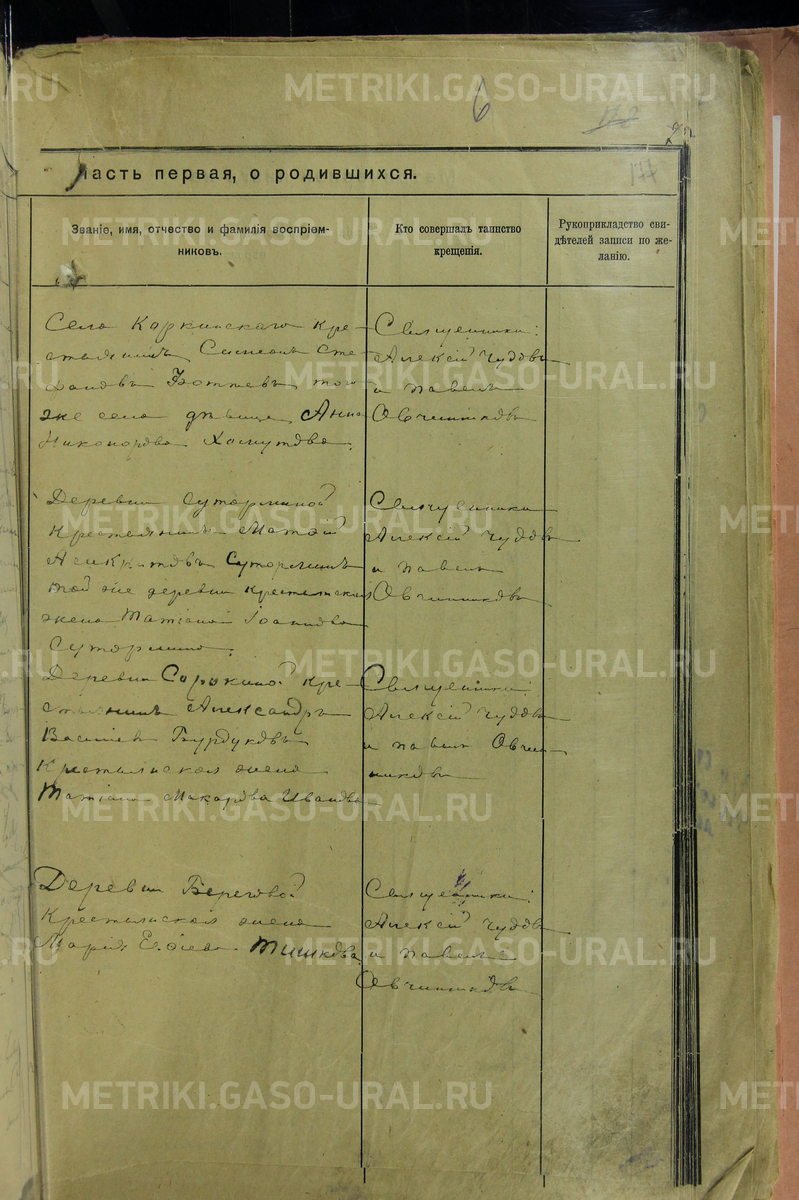 METRIKI.GASO-URAL.RU
6
Часть первая, о родившихся.
Званіе, имя, отчество и фамилія воспріем-
никовъ.
Кто совершалъ таинство
крещенія.
Рукоприкладство сви-
дѣтелей записи по же-
ланію.
Села Коркинскаго кре-
стьянинъ
тои
же села дѣвица Анна
Никонорова Хомутова.
Священники:
Алексій Чудовъ
и Павелъ
Овчинниковъ
Деревни Суториной
крестьянинъ
Суторинъ
той же деревни крестьянская
жена Татіана Іоаннова
Суторина.
Священники
Алексій Чудовъ
и Павелъ
Овчинниковъ
Деревни Сорокиной кре-
стьянинъ Александръ
Василіевъ Бурдуковъ,
крестьянская жена
Татіана Макарова Иванова
Священники:
Алексій Чудовъ
и Павелъ Овчин-
никовъ
Деревни Береговой
крестьянская жена
Марія Тишкова
Священники:
Алексій Чудовъ
и Павелъ
Овчинниковъ